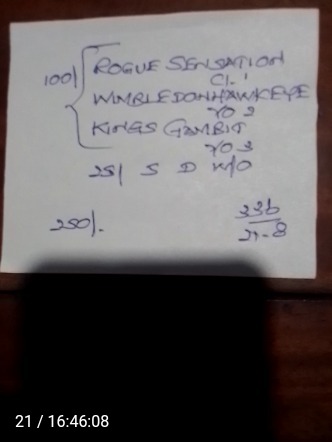 100/ ROGUE SENSATION
CL 1
WIMBLEDON HAWKEYE
YO 2
KINGS GAMBIT
YO 3
25/ S D W/O
250/-
336
21-8
21 / 16:46:08